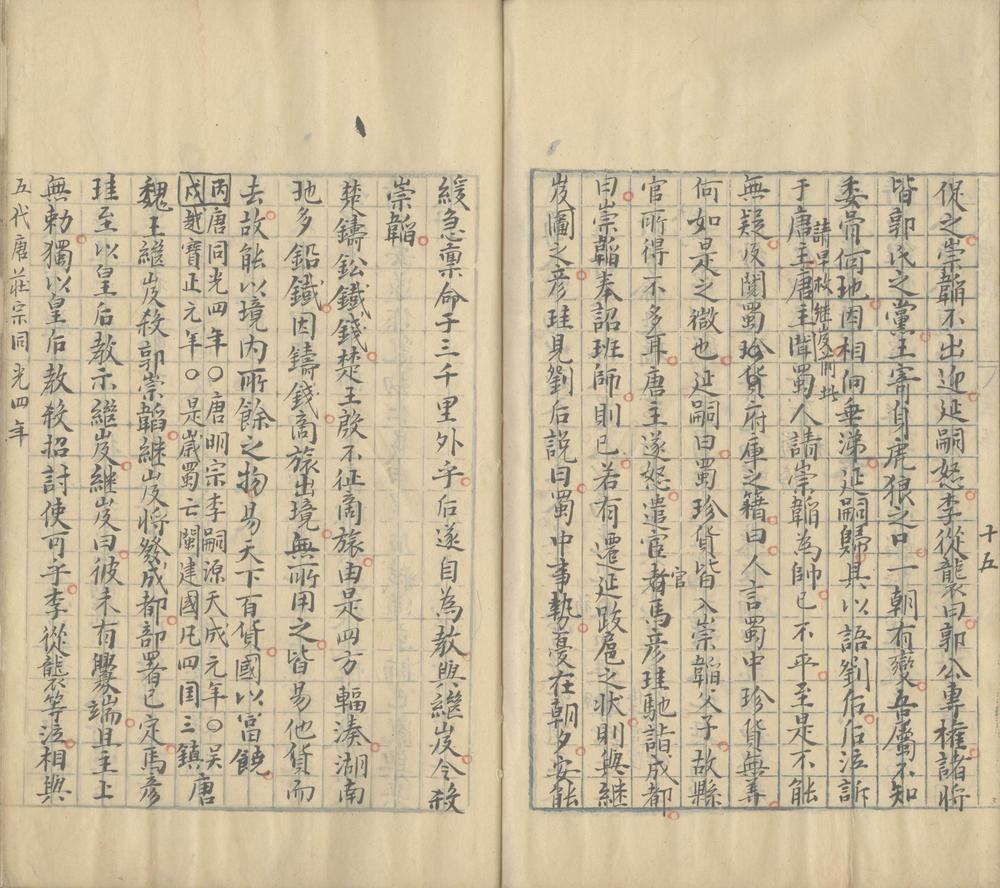 十五
促之崇韜不出迎延嗣怒李從襲曰郭公專權諸將
皆郭氏之黨王寄身虎狼之口一朝有變吾屬不知
委骨何地因相向垂涕延嗣歸具以語劉后后泣訴
請早救継岌前此
于唐主唐主聞蜀人請崇韜為帥已不平至是不能
無疑及閱蜀珍貨府庫之籍曰人言蜀中珍貨無筭
何如是之微也延嗣曰蜀珍貨皆入崇韜父子故縣
官所得不多耳唐主遂怒遣宦者馬彦珪馳詣成都
官
曰崇韜奉詔班師則已若有遷延跋扈之狀則與継
岌圖之彦珪見劉后説曰蜀中事勢憂在朝夕安能
緩急稟命于三千里外乎后遂自為教與繼岌令殺
崇韜
楚鑄鈆鐵錢楚王殷不征商旅由是四方輻湊湖南
地多鉛鐵因鑄錢商旅出境無所用之皆易他貨而
去故能以境内所餘之物易天下百貨國以富饒
丙唐同光四年〇唐明宗李嗣源天成元年〇吴
戌越寶正元年〇是歲蜀亡閩建國凡四国三鎮 唐
魏王繼岌殺郭崇韜継岌將發成都部署已定馬彦
珪至以皇后教示繼岌継岌曰彼未有釁端且主上
無勅獨以皇后教殺招討使可乎李從襲等泣相與
五代唐莊宗同光四年